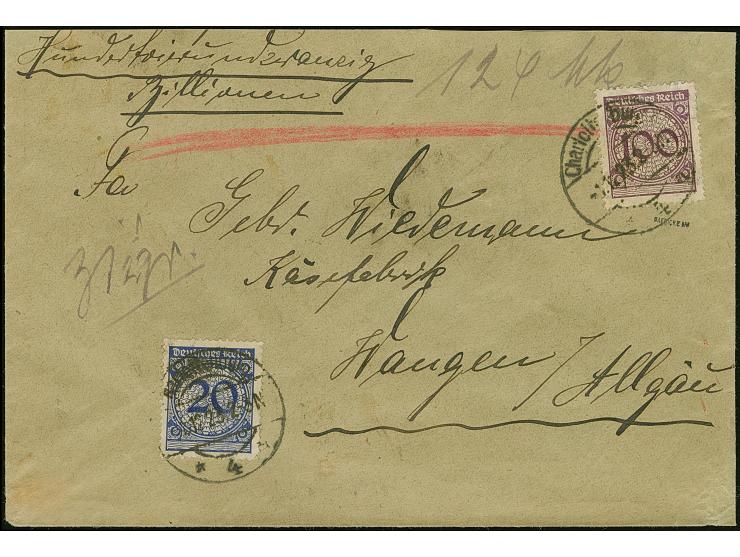 Hundertvierundzwanzig
Billionen
124 Mk
Deutsches Reich
100
Charlottenb
Fa
Gebr. Wiedemann
Käsefabrik
Wangen / Allgäu
Deutsches Reich
20
* 4